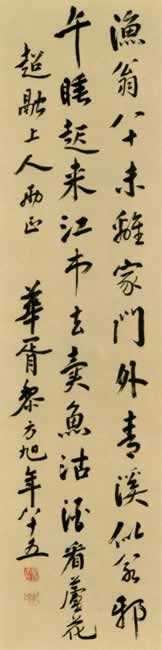 漁翁八十未離家門外青溪似若邪
午睡起来江市去賣魚沽酒看蘆花
超融上人正
華胥黎方旭年八十五